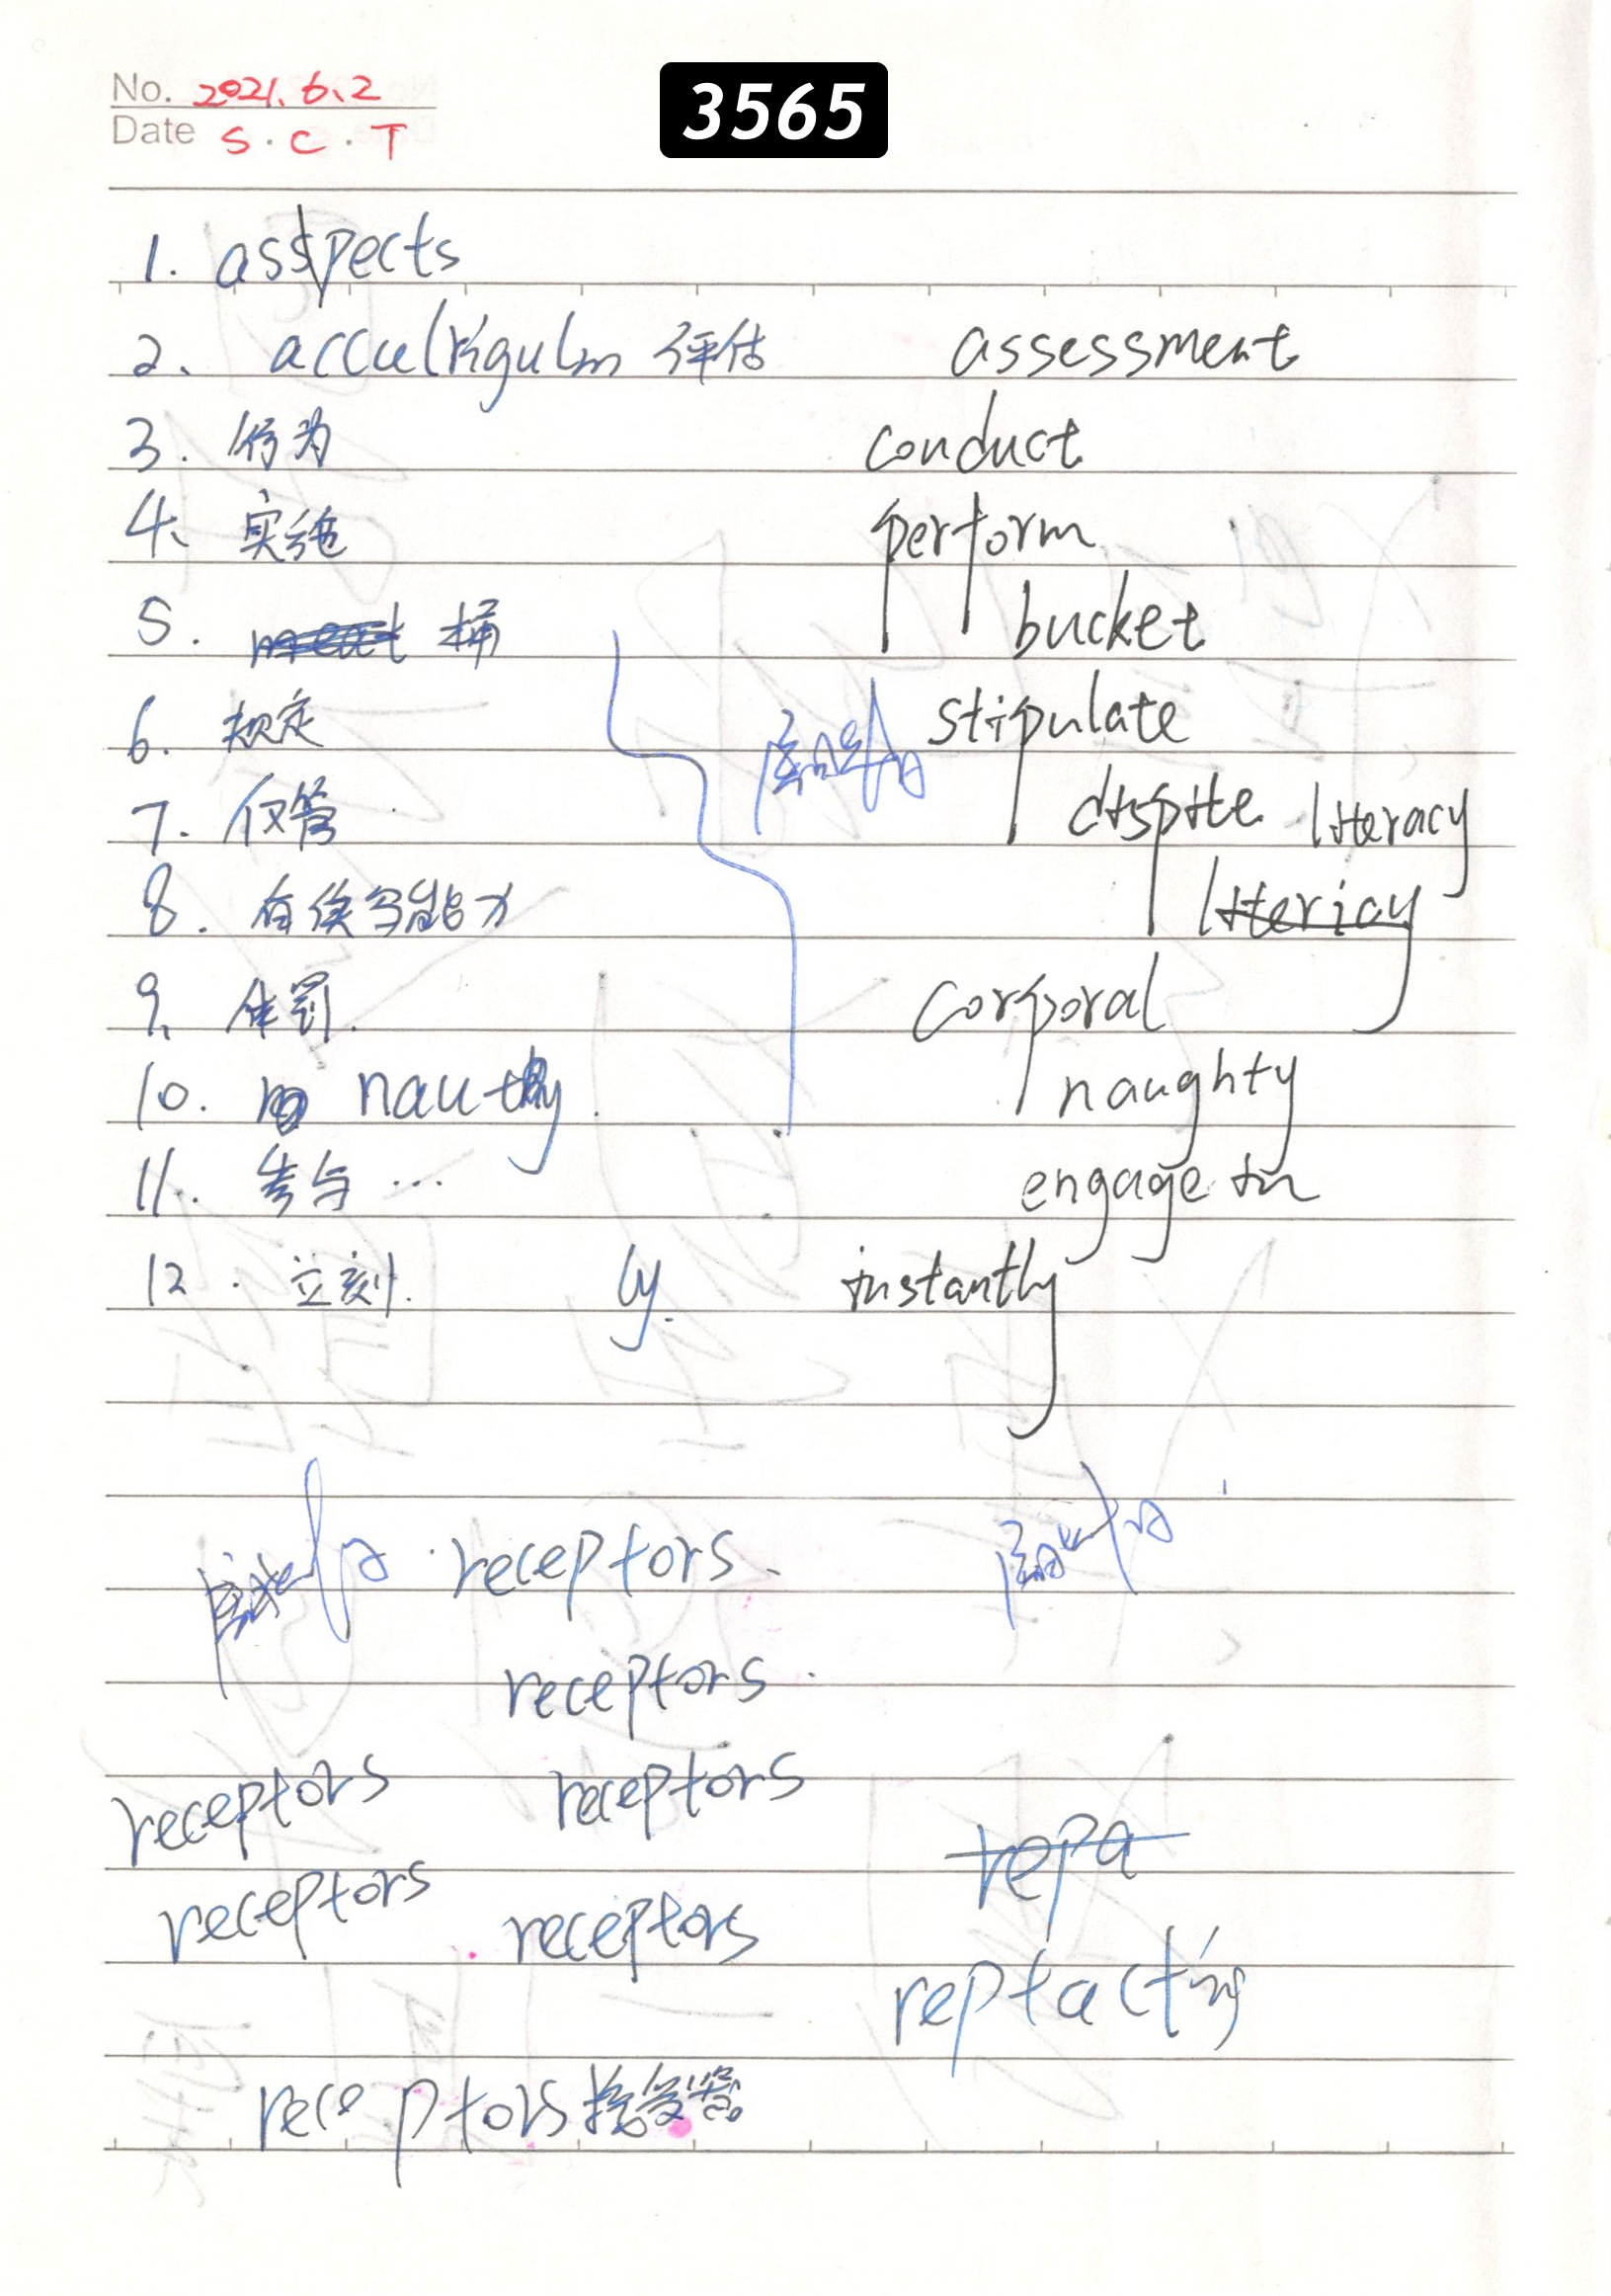 3565
No. 2021.6.2
Date S.C.T
1. asspects
2、 评估 assessment
3. 行为 conduct
4、 实施 perform
5. 桶 bucket
6. 规定 stipulate
7. 仅管 dispite literacy
8. 有读写能力 literiay
9、 体罚. corporal
10. nauthy. naughty
11. 参与 … engage in
12. 立刻. ly. instantly
receptors.
receptors.
receptors receptors
repa
receptors receptors
reptacting
receptors 接受器